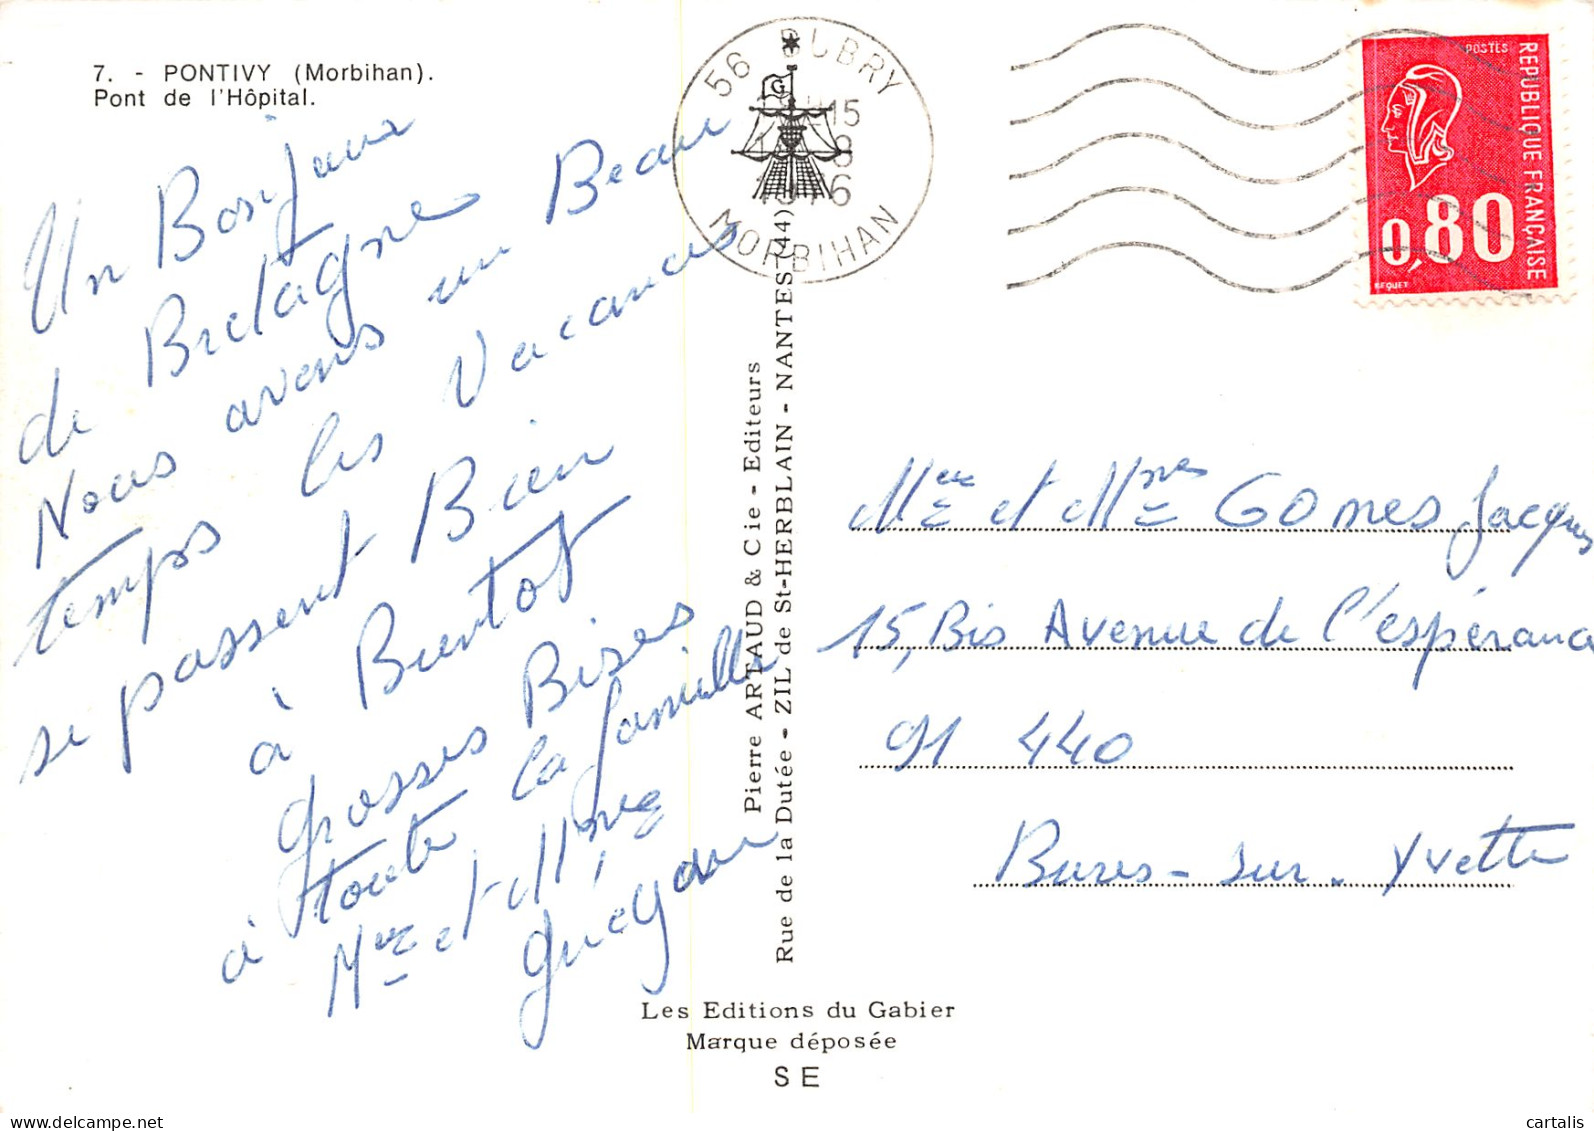 7. - PONTIVY (Morbihan).
Pont de l'Hôpital.
Un Bonjour
de Bretagne
Nous avons un Beau
temps les Vacances
se passent Bien
à Bientot
grosses Bises
à toute la famille
Mr et Mme
56 BUBRY
15
8
1976
MORBIHAN
G
POSTES
REPUBLIQUE FRANÇAISE
0,80
BEQUET
Pierre ARTAUD & Cie - Editeurs
Rue de la Dutée - ZIL de St-HERBLAIN - NANTES (44)
et Mme Gomes Jacques
15, Bis Avenue de l'espérance
91 440
Bures-sur-Yvette
Les Editions du Gabier
Marque déposée
SE
cartalis
delcampe.net